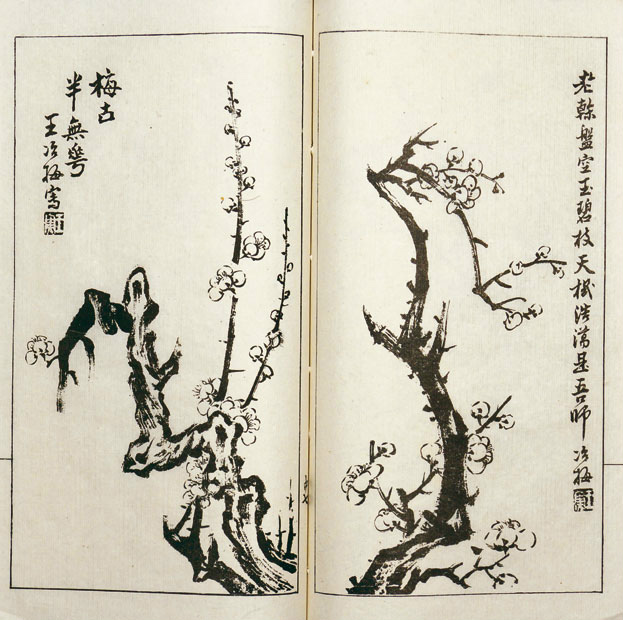 老榦盤空玉碧枝天機浩蕩是吾師冶梅
梅古
半無花
王冶梅寫